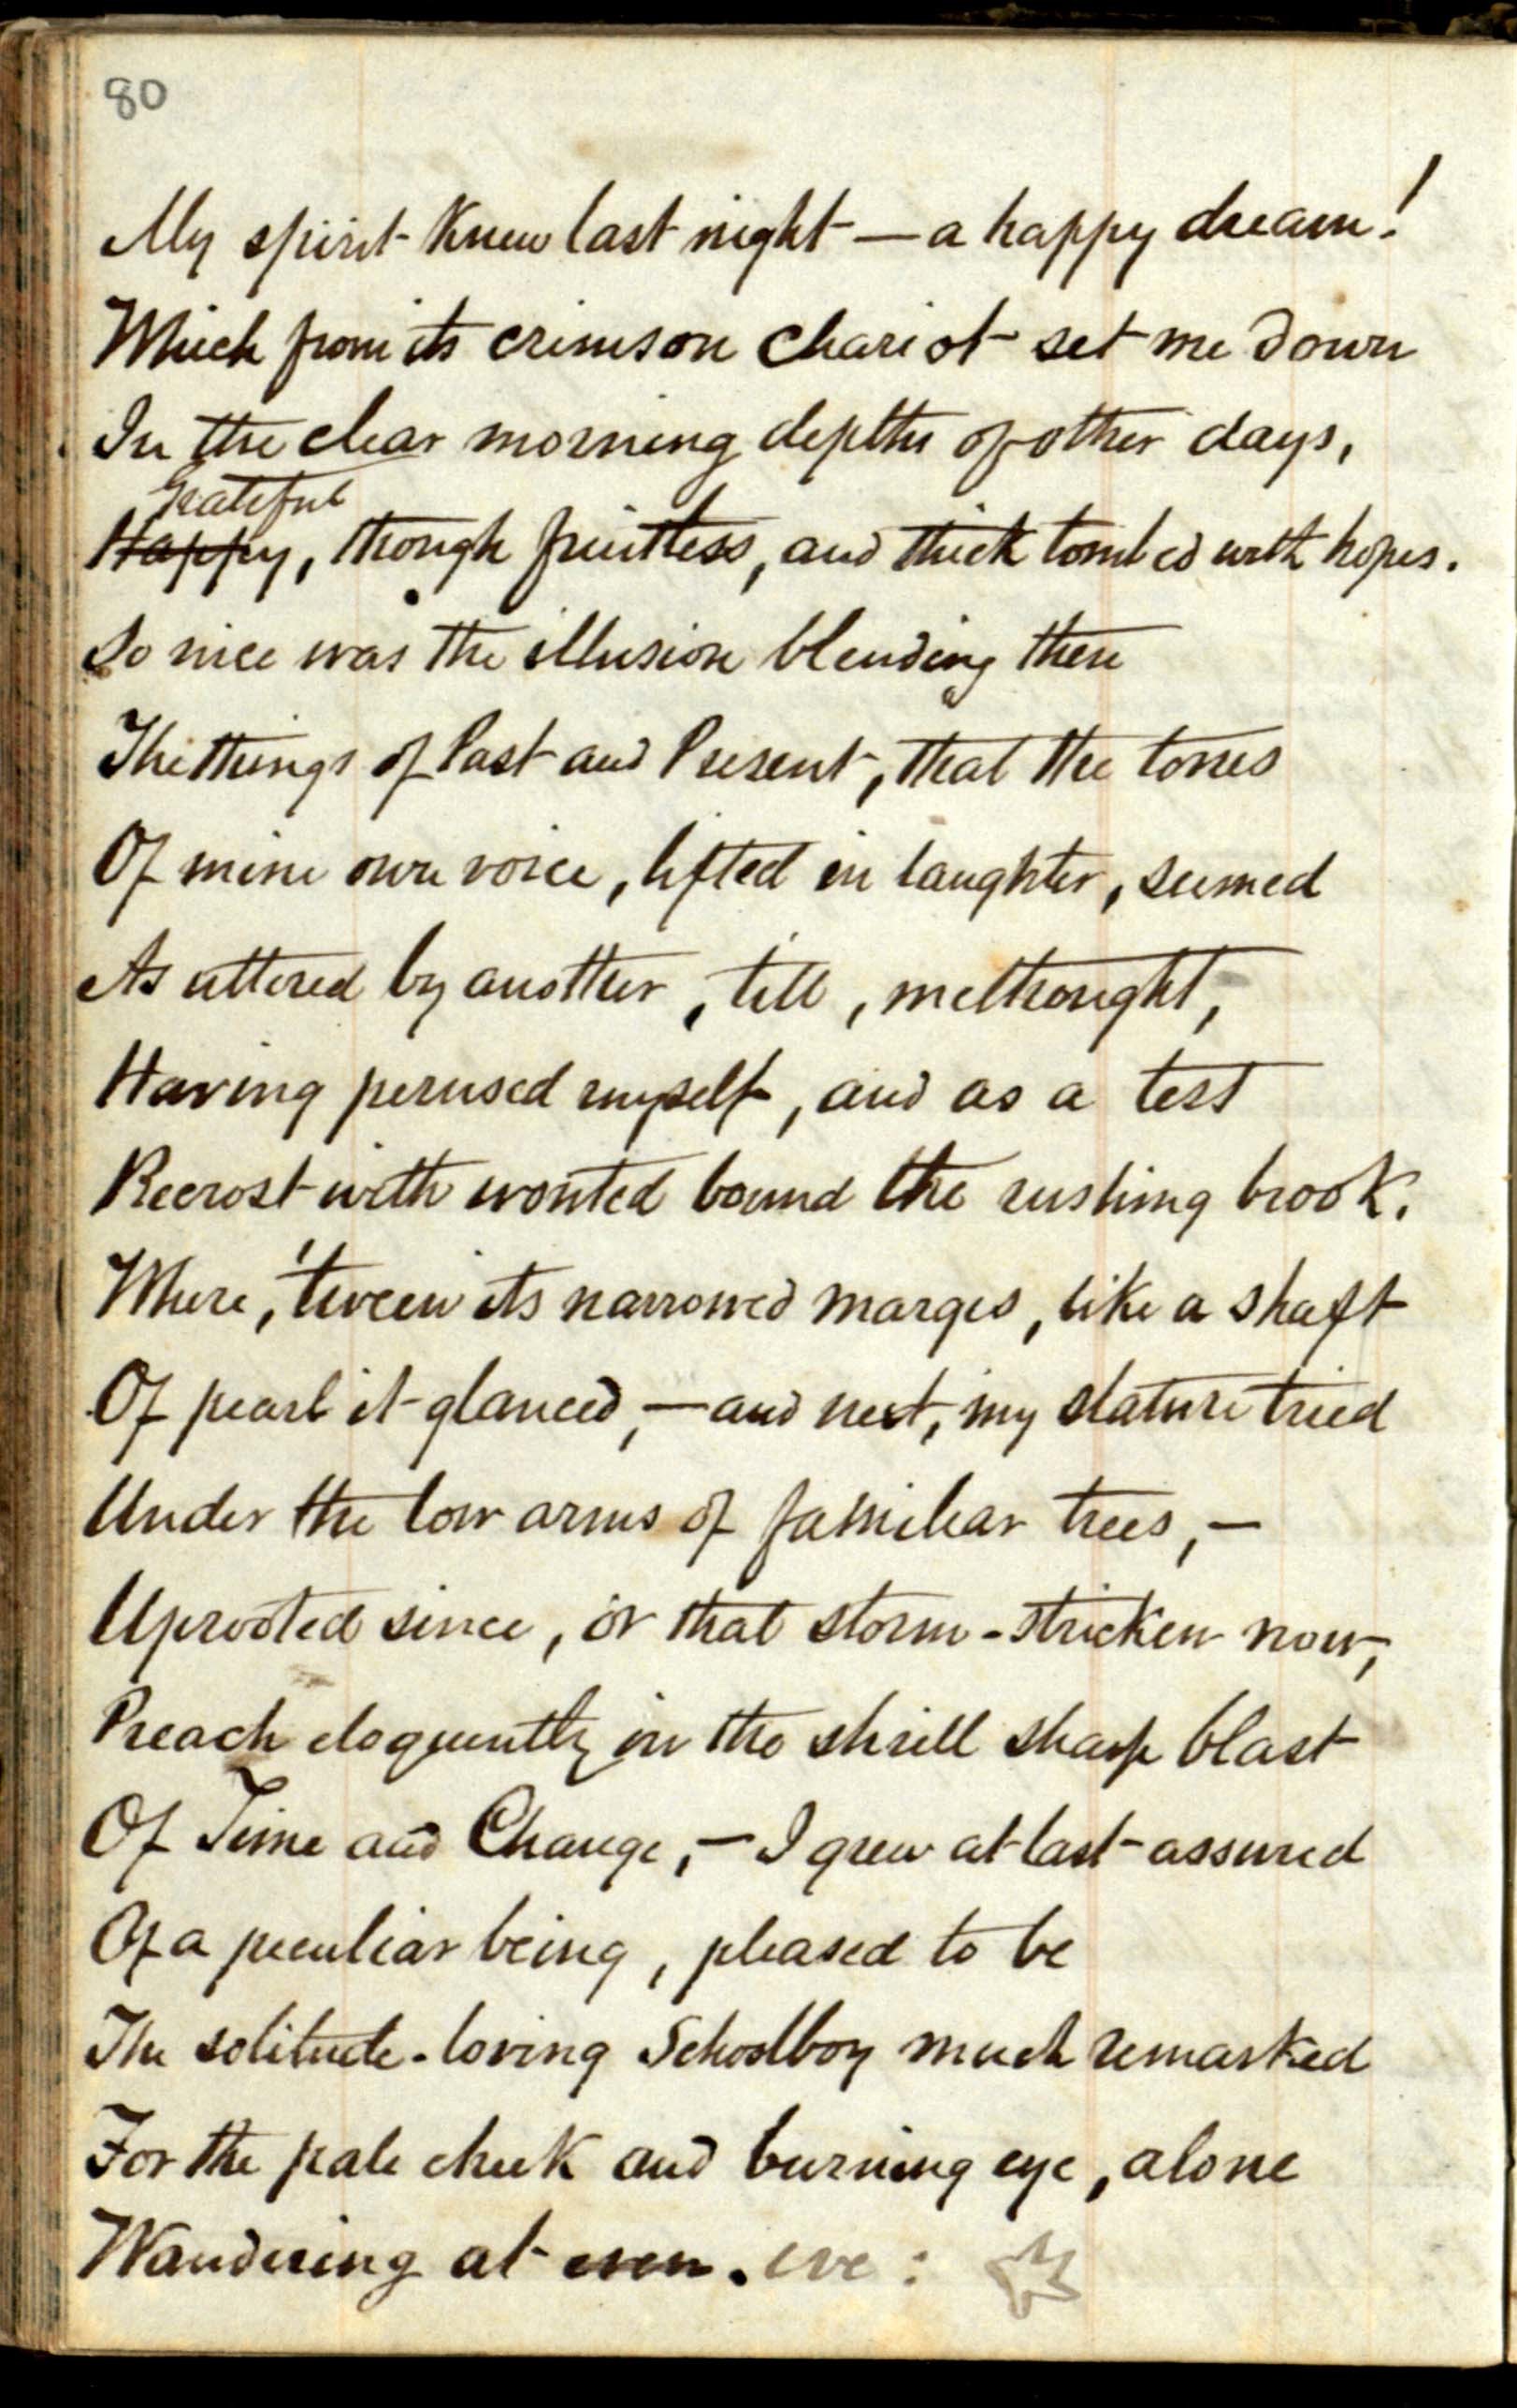 80
My spirit knew last night — a happy dream!
Which from its crimson chariot set me down
In the clear morning depths of other days,
Grateful
Happy, though fruitless, and thick tombed with hopes.
So nice was the illusion blending there
The things of Past and Present, that the tones
Of mine own voice, lifted in laughter, seemed
As uttered by another, till, methought,
Having perused myself, and as a test
Recrost with wonted bound the rushing brook.
Where, 'tween its narrowed marges, like a shaft
Of pearl it glanced, — and next, my stature tried
Under the low arms of familiar trees, —
Uprooted since, or that storm-stricken now,
Preach eloquently in the shrill sharp blast
Of Time and Change, — I grew at last assured
Of a peculiar being, pleased to be
The solitude-loving Schoolboy much remarked
For the pale cheek and burning eye, alone
Wandering at even. eve: